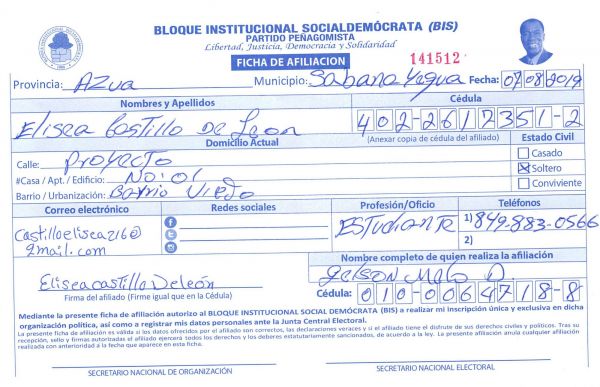 BLOQUE INSTITUCIONAL SOCIALDEMÓCRATA (BIS)
PARTIDO PEÑAGOMISTA
Libertad, Justicia, Democracia y Solidaridad
FICHA DE AFILIACION
141512
Provincia: AZUA Municipio: Sabana Yegua Fecha: 07/08/2019
Nombres y Apellidos Cédula
Elisea Castillo De Leon 402-2617351-2
Domicilio Actual (Anexar copia de cédula del afiliado) Estado Civil
Calle: Proyecto Casado
#Casa / Apt./ Edificio: No: 01 Soltero
Barrio / Urbanización: Barrio Viejo Conviviente
Correo electrónico Redes sociales Profesión/Oficio Teléfonos
Castilloelisea216@ ESTudianTe 1) 849-883-0566
gmail.com 2)
Nombre completo de quien realiza la afiliación
Elisea castillo De león Gelson Melo D.
Firma del afiliado (Firme igual que en la Cédula) Cédula: 010-0064718-8
Mediante la presente ficha de afiliación autorizo al BLOQUE INSTITUCIONAL SOCIAL DEMÓCRATA (BIS) a realizar mi inscripción única y exclusiva en dicha
organización política, así como a registrar mis datos personales ante la Junta Central Electoral.
La presente ficha de afiliación es válida si los datos ofrecidos por el afiliado son correctos, las declaraciones veraces y si el afiliado tiene el disfrute de sus derechos civiles y políticos. Tras su
recepción, sello y firmas autorizadas el afiliado ejercerá todos los derechos y los deberes estatutariamente sancionados, de acuerdo a la ley. La presente afiliación anula cualquier afiliación
realizada con anterioridad a la fecha que aparece en esta ficha.
SECRETARIO NACIONAL DE ORGANIZACIÓN SECRETARIO NACIONAL ELECTORAL